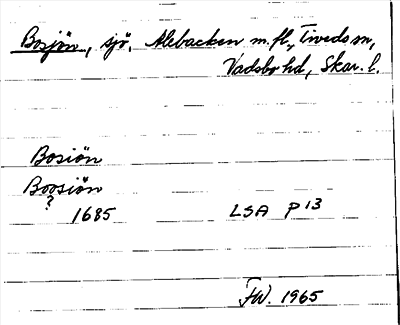 Bosjön, sjö. Alebacken m.fl., Tiveds sn,
Vadsbo hd, Skar. l.
Bosiön
Boosiön
?
1685 LSA P 13
FW. 1965